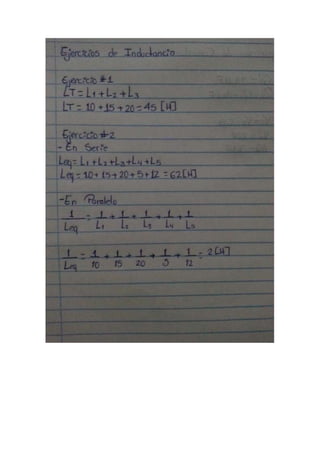 Ejercicios de Inductancia
Ejercicio #1
LT = L1 + L2 + L3
LT = 10 + 15 + 20 = 45 [H]
Ejercicio #2
- En Serie
Leq = L1 + L2 + L3 + L4 + L5
Leq = 10 + 15 + 20 + 5 + 12 = 62 [H]
- En Paralelo
1/Leq = 1/L1 + 1/L2 + 1/L3 + 1/L4 + 1/L5
1/Leq = 1/10 + 1/15 + 1/20 + 1/5 + 1/12 = 2 [H]